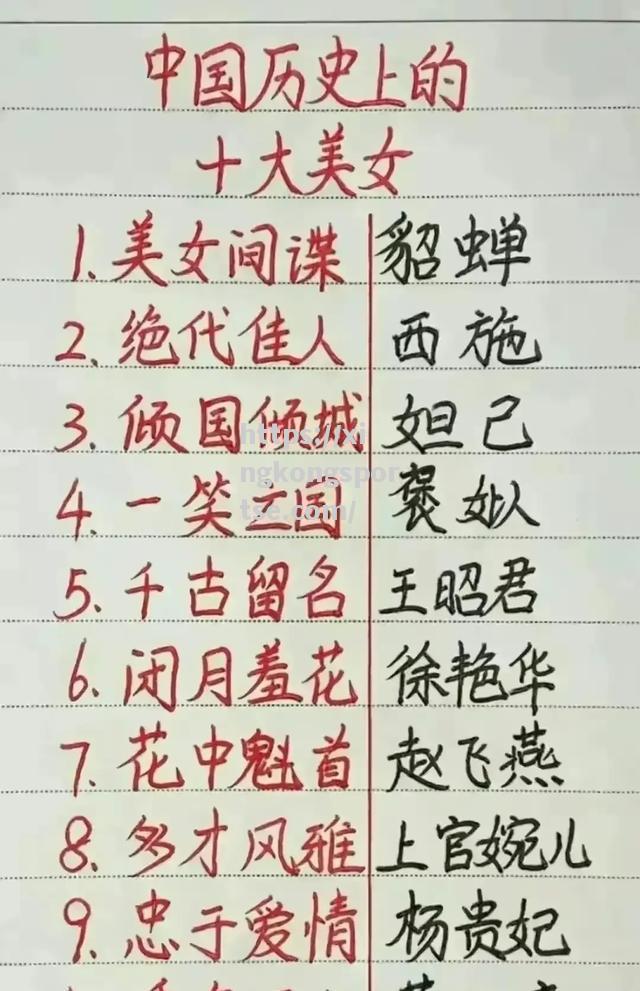 中国历史上的
十大美女
1. 美女间谍 貂蝉
2. 绝代佳人 西施
3. 倾国倾城 妲己
https://xi
ngkongspor
tse.com/
4. 一笑 国 褒姒
5. 千古留名 王昭君
6. 闭月羞花 徐艳华
7. 花中魁首 赵飞燕
8. 多才风雅 上官婉儿
9. 忠于爱情 杨贵妃